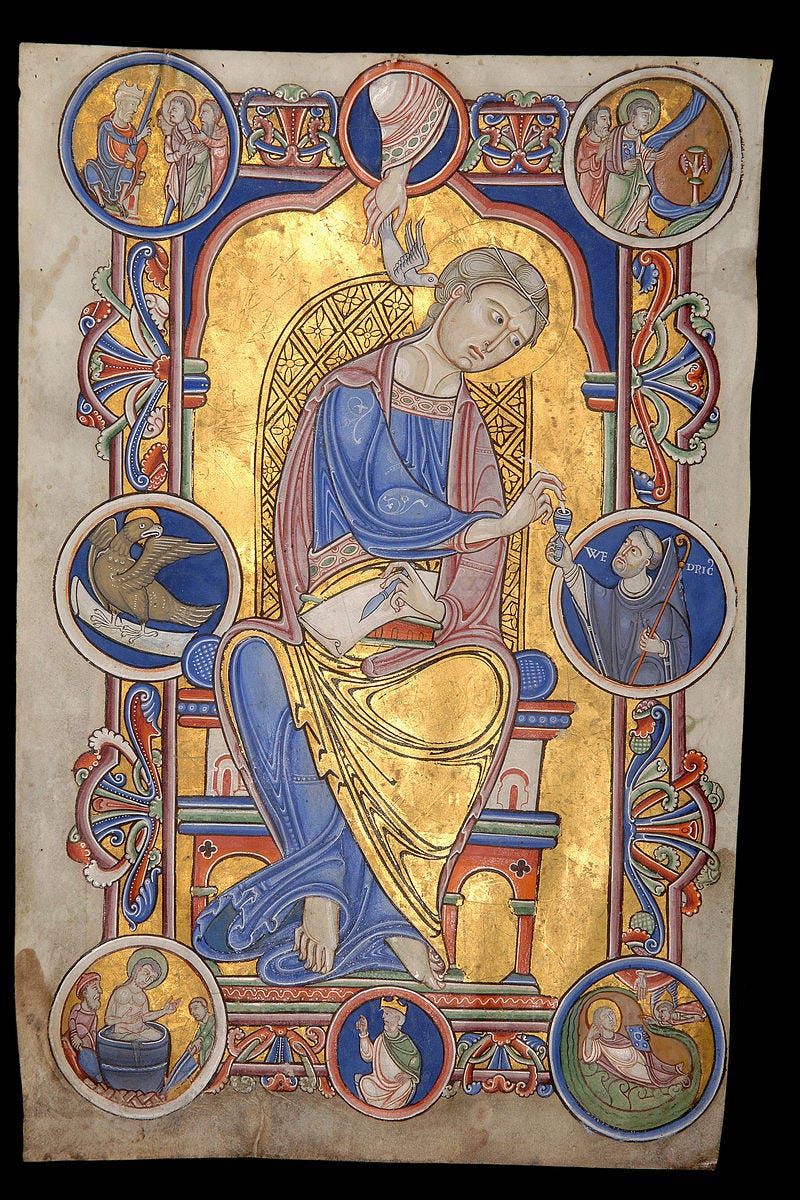 WE
DRIC᾿